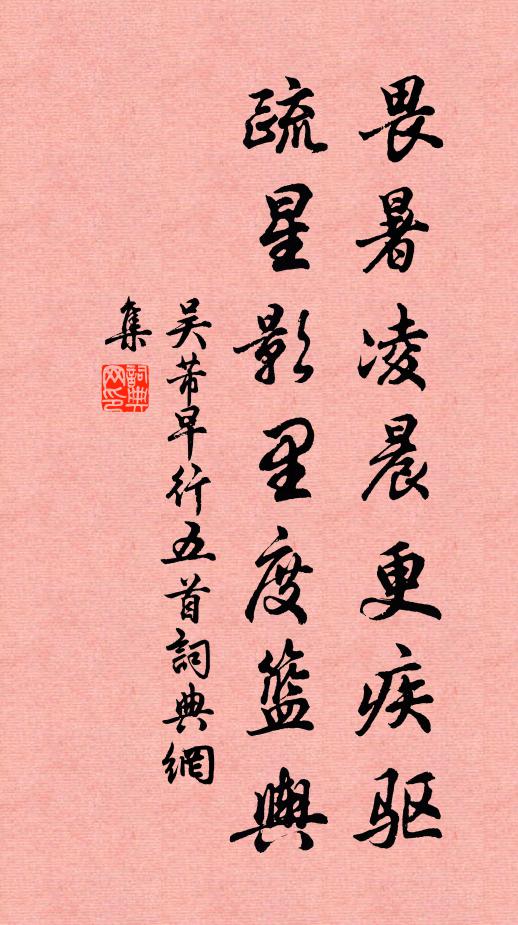 畏暑凌晨更疾驱
疏星影里度篮舆
吴芾早行五首詞典網
集
詞典
网印